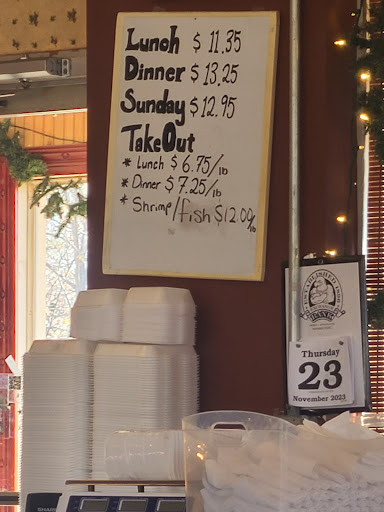 Lunch $ 11.35
Dinner $ 13.25
Sunday $ 12.95
TakeOut
* Lunch $ 6.75/lb
* Dinner $ 7.25/lb
* Shrimp/fish $12.00/lb
Thursday
23
November 2023